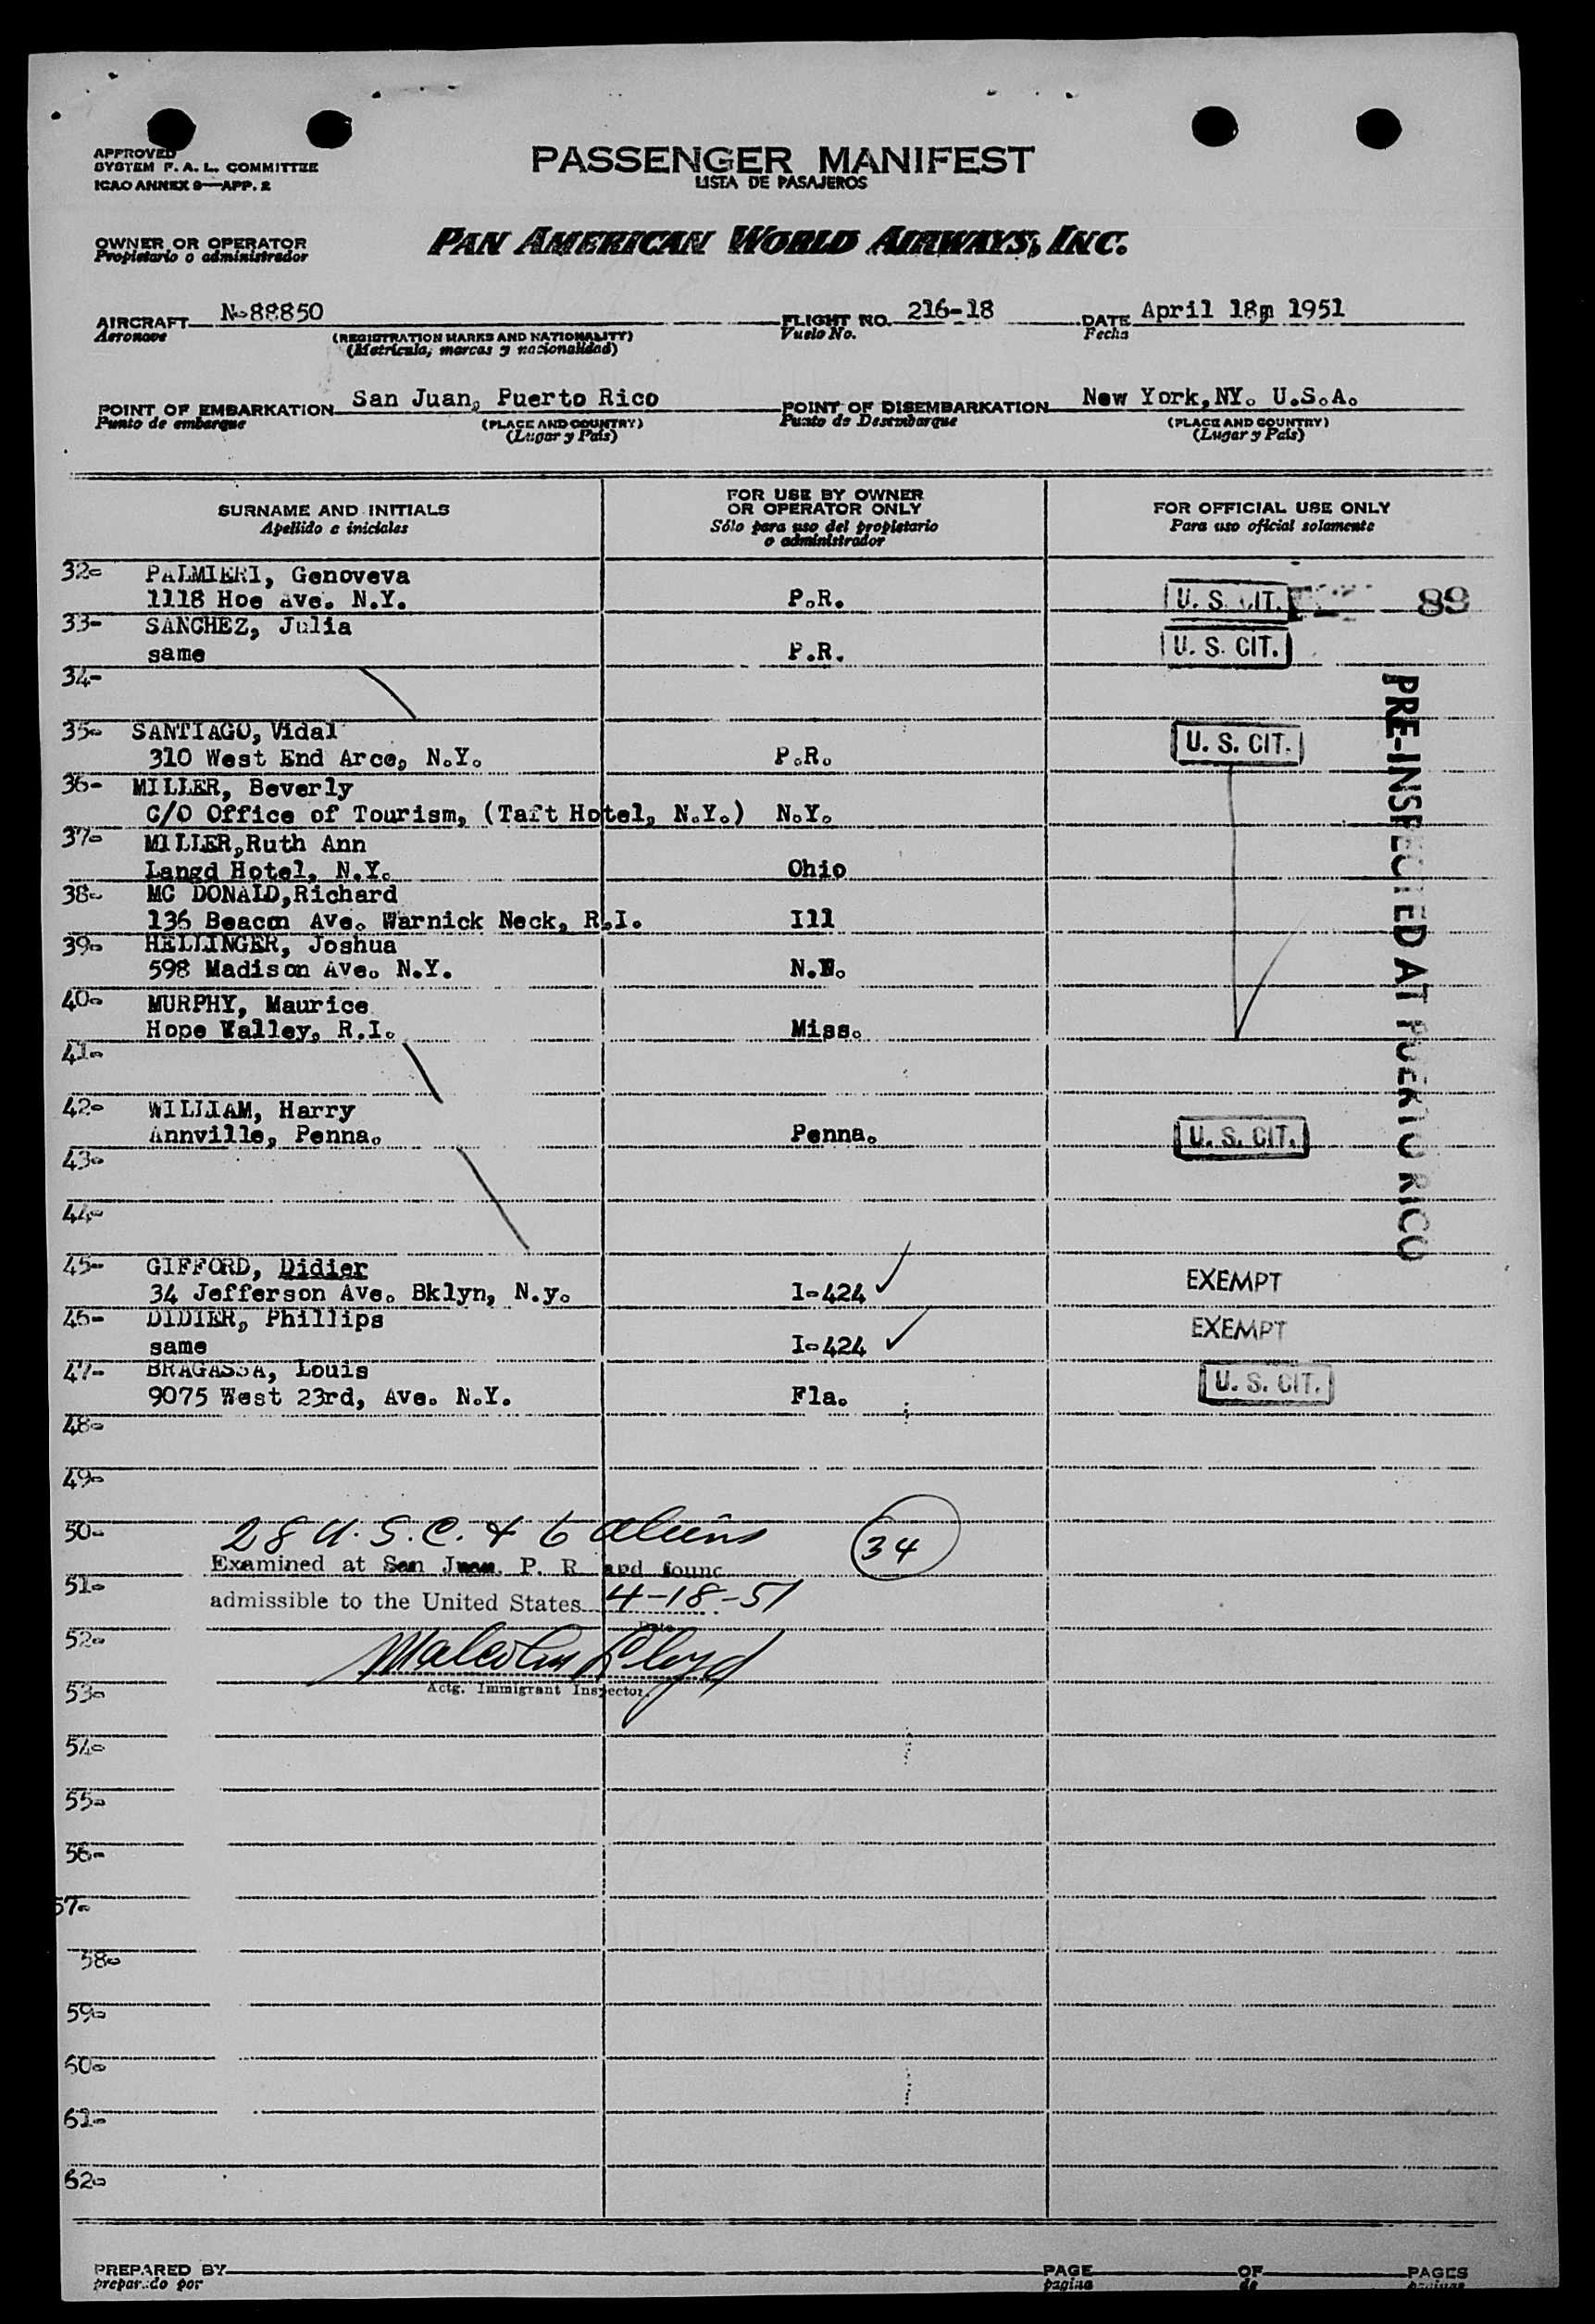 APPROVED
SYSTEM F. A. L. COMMITTEE
ICAO ANNEX 9—APP. 2
PASSENGER MANIFEST
LISTA DE PASAJEROS
OWNER OR OPERATOR
Propietario o administrador
PAN AMERICAN WORLD AIRWAYS, INC.
AIRCRAFT N-88850 FLIGHT NO. 216-18 DATE April 18m 1951
Aeronave (REGISTRATION MARKS AND NATIONALITY) Vuelo No. Fecha
(Matrícula, marcas y nacionalidad)
POINT OF EMBARKATION San Juan, Puerto Rico POINT OF DISEMBARKATION New York,NY. U.S.A.
Punto de embarque (PLACE AND COUNTRY) Punto de Desembarque (PLACE AND COUNTRY)
(Lugar y País) (Lugar y País)
SURNAME AND INITIALS FOR USE BY OWNER OR OPERATOR ONLY FOR OFFICIAL USE ONLY
Apellido e iniciales Sólo para uso del propietario o administrador Para uso oficial solamente
32- PALMIERI, Genoveva
1118 Hoe Ave. N.Y. P.R. U. S. CIT. 89
33- SANCHEZ, Julia
same P.R. U. S. CIT.
34-
35- SANTIAGO, Vidal
310 West End Arce, N.Y. P.R. U. S. CIT.
36- MILLER, Beverly
C/O Office of Tourism, (Taft Hotel, N.Y.) N.Y.
37- MILLER,Ruth Ann
Langd Hotel, N.Y. Ohio
38- MC DONALD,Richard
136 Beacon Ave. Warnick Neck, R.I. Ill
39- HELLINGER, Joshua
598 Madison Ave. N.Y.
40- MURPHY, Maurice
Hope Valley, R.I. Miss.
41-
42- WILLIAM, Harry
Annville, Penna. Penna. U. S. CIT.
43-
44-
PRE-INSPECTED AT PUERTO RICO
45- GIFFORD, Didier
34 Jefferson Ave. Bklyn, N.y. I-424 EXEMPT
46- DIDIER, Phillips
same I-424 EXEMPT
47- BRAGASSA, Louis
9075 West 23rd, Ave. N.Y. Fla. U. S. CIT.
48-
49-
50- 28 U.S.C. & 6 aliens 34
Examined at San Juan, P. R. and found
51- admissible to the United States 4-18-51
Date
52- Malcolm Lloyd
53- Actg. Immigrant Inspector.
54-
55-
56-
57-
58-
59-
60-
61-
62-
PREPARED BY PAGE OF PAGES
preparado por página de páginas